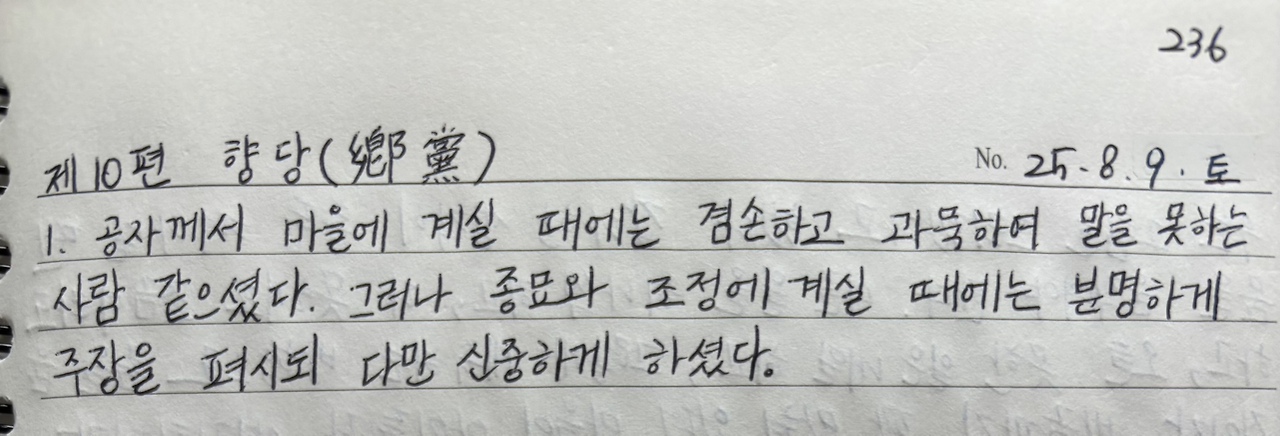 236
제10편 향당(鄕黨) No. 25. 8. 9. 토
1. 공자께서 마을에 계실 때에는 겸손하고 과묵하여 말을 못하는
사람 같으셨다. 그러나 종묘와 조정에 계실 때에는 분명하게
주장을 펴시되 다만 신중하게 하셨다.